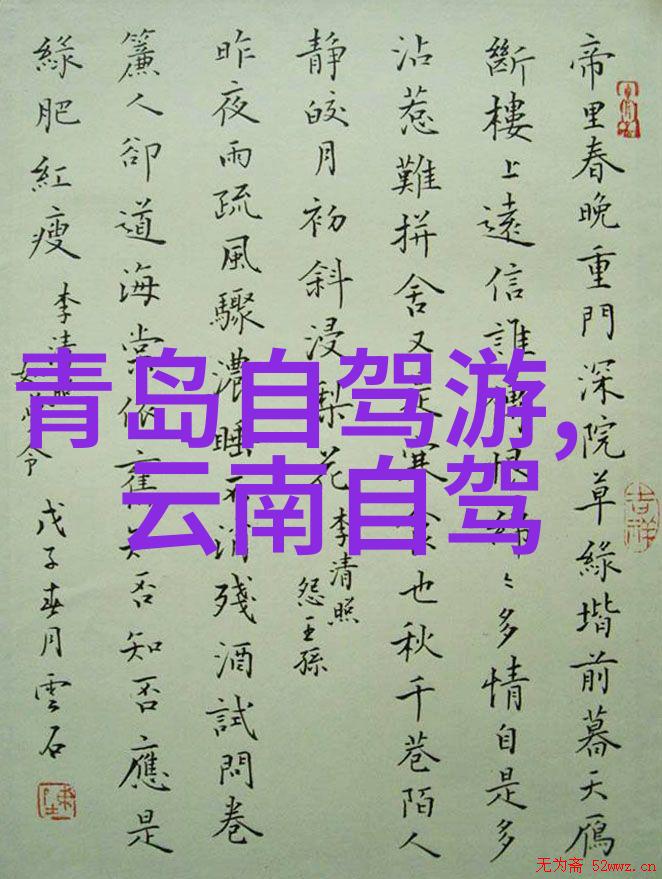 帝里春晚重門深院草綠堦前暮天鴈
斷樓上遠信誰傳恨綿々多情自是多
沾惹難拼舍又是寒食也秋千巷陌人
静皎月初斜浸梨花
李清照
怨王孫
昨夜雨疏風驟濃睡不消殘酒試問卷
簾人卻道海棠依舊知否知否應是
綠肥紅瘦
李清照
如夢令
戊子春月雲石
吉祥
青岛自驾游,
云南自驾
无为斋 52wwz.cn